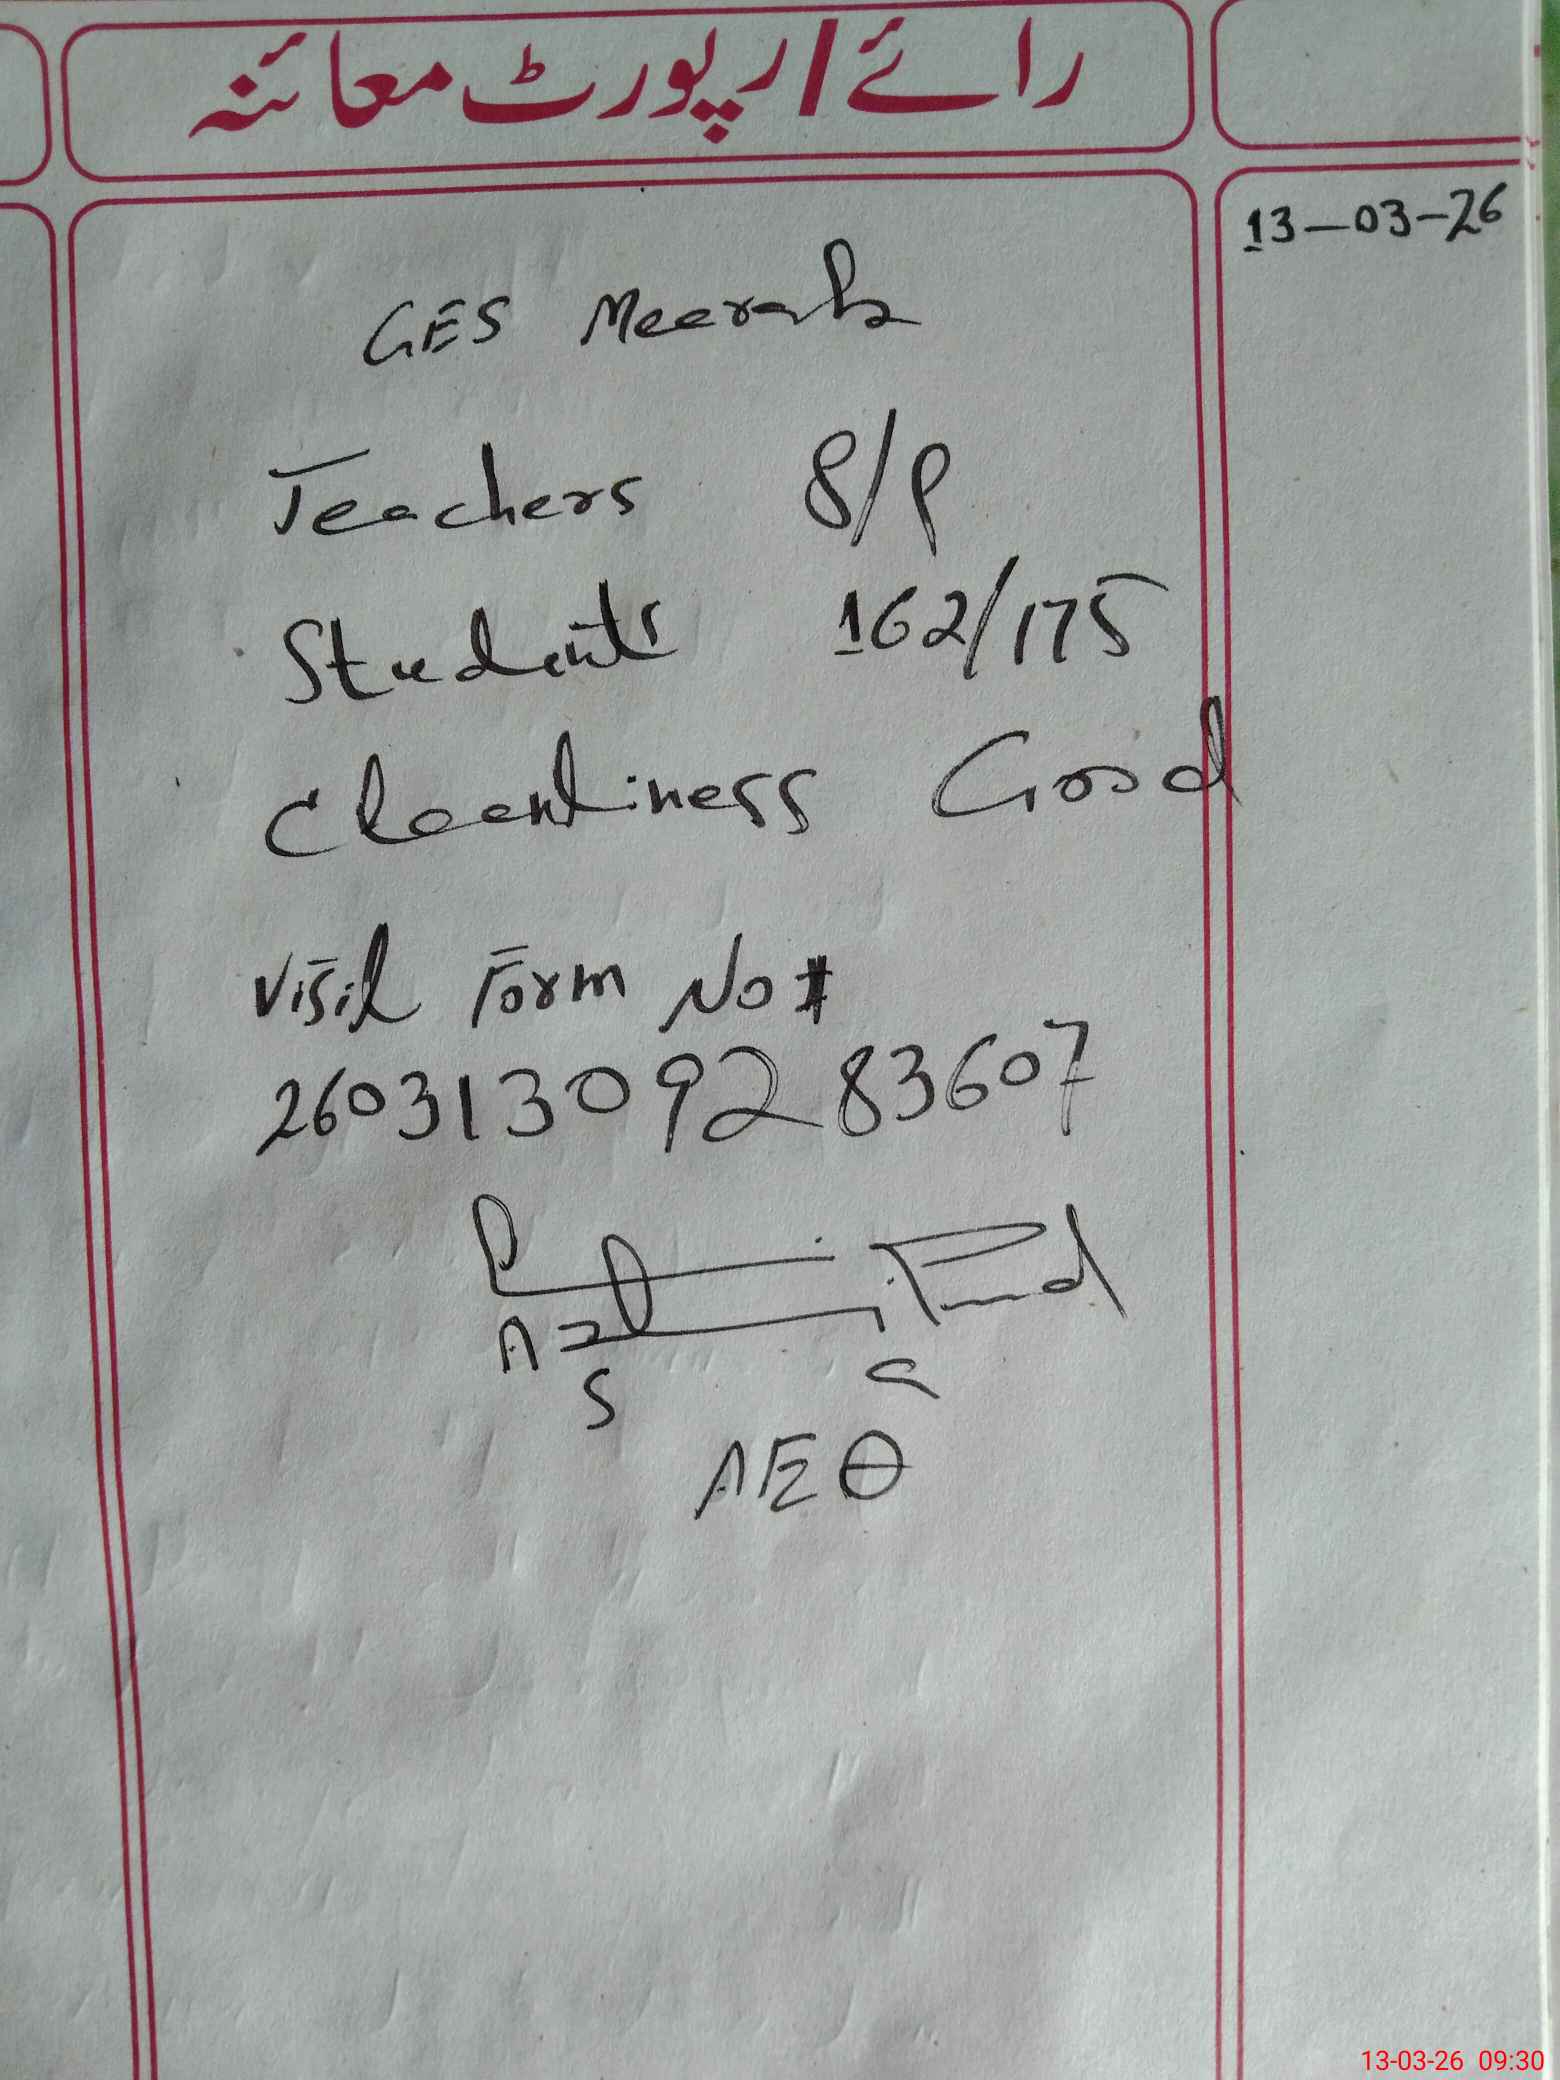 رائے/رپورٹ معائنہ
13-03-26
GES Meerak
Teachers 8/9
Students 162/175
Cleanliness Good
Visit Form No #
26031309283607
AEO
13-03-26 09:30